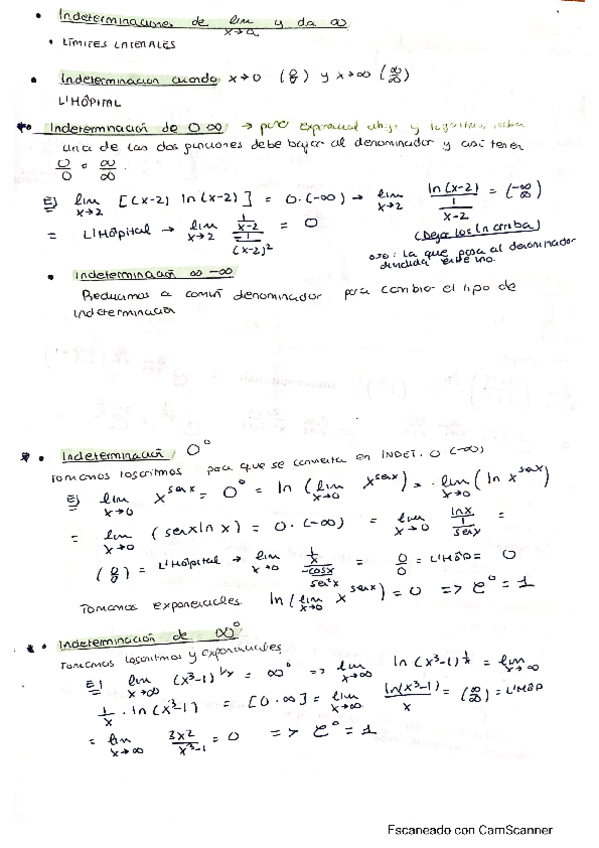 • Indeterminaciones de lim x→a y da ∞
• LÍMITES LATERALES
• Indeterminación cuando x→0 (0/0) y x→∞ (∞/∞)
L'HÔPITAL
• Indeterminación de 0·∞ → exponencial abajo y
una de las dos funciones debe bajar al denominador y así tener
0/0 o ∞/∞.
Ej lim x→2 [(x-2) ln(x-2)] = 0·(-∞) → lim x→2 ln(x-2) / (1/(x-2)) = (-∞/∞)
= L'Hôpital → lim x→2 (1/(x-2)) / (-1/(x-2)²) = 0
(Dejar los ln arriba)
OJO: La que pasa al denominador
dividida entre uno.
• Indeterminación ∞-∞
Reducimos a común denominador para cambiar el tipo de
indeterminación
• Indeterminación 0⁰
Tomamos logaritmos para que se convierta en INDET. 0 (-∞)
Ej lim x→0 x^senx = 0⁰ = ln (lim x→0 x^senx) = lim x→0 (ln x^senx)
= lim x→0 (senx ln x) = 0·(-∞) = lim x→0 lnx / (1/senx) =
(0/0) = L'Hôpital → lim x→0 (1/x) / (-cosx/sen²x) = 0/0 = L'HÔP = 0
Tomamos exponenciales. ln(lim x→0 x^senx) = 0 => e⁰ = 1
• Indeterminación de ∞⁰
Tomamos logaritmos y exponenciales
Ej lim x→∞ (x³-1)^1/x = ∞⁰ => lim x→∞ ln (x³-1)^1/x = lim x→∞
1/x · ln(x³-1) = [0·∞] = lim x→∞ ln(x³-1)/x = (∞/∞) = L'HÔP
= lim x→∞ 3x2/x³-1 = 0 => e⁰ = 1
Escaneado con CamScanner